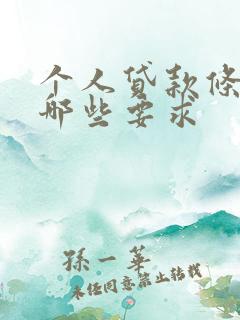 个人贷款条
哪些要求
孫一華
未经同意禁止转载